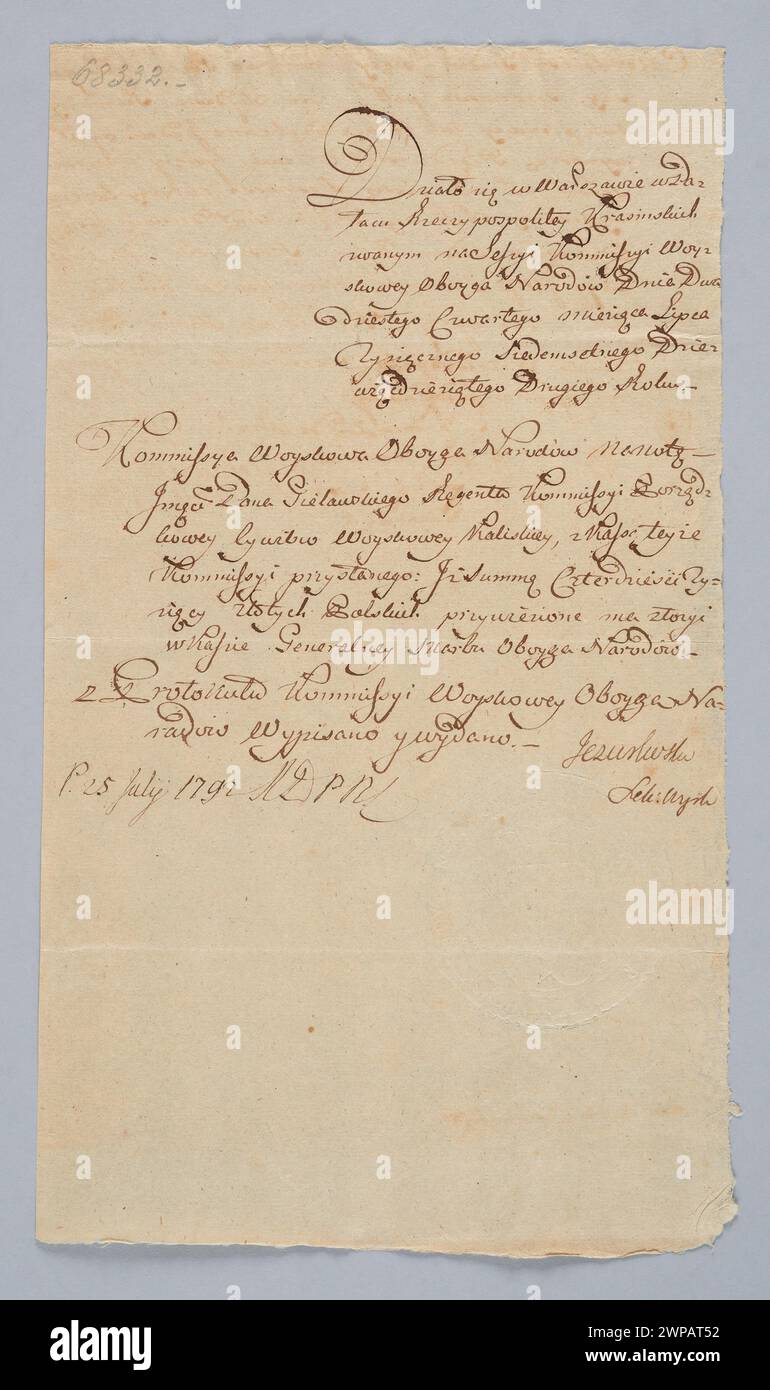 68332.-
Działo się w Warszawie w Pa-
łacu Rzeczypospolitey Krasinskich
zwanym na Sessyi Kommissyi Woy-
skowey Oboyga Narodów Dnia Dwu
dziestego Czwartego Miesiąca Lipca
Tysiącznego Siedemsetnego Dzie-
więdziesiątego Drugiego Roku.-
Kommissya Woyskowa Oboyga Narodów na notę
Jmści Pana Gielawskiego Regenta Kommissyi Porząd-
kowey Cywilno Woyskowey Kaliskiey, z Kassą teyże
Kommissyi przysłanego: Iż Summę Czterdzieści Ty-
sięcy Złotych Polskich przywiezione ma złożyć
w Kassie Generalney Skarbu Oboyga Narodów-
Z Protokułu Kommissyi Woyskowey Oboyga Na-
rodów Wypisano y wydano.-
P. 25 July 1792
alamy
alamy
Image ID: 2WPAT52
www.alamy.com